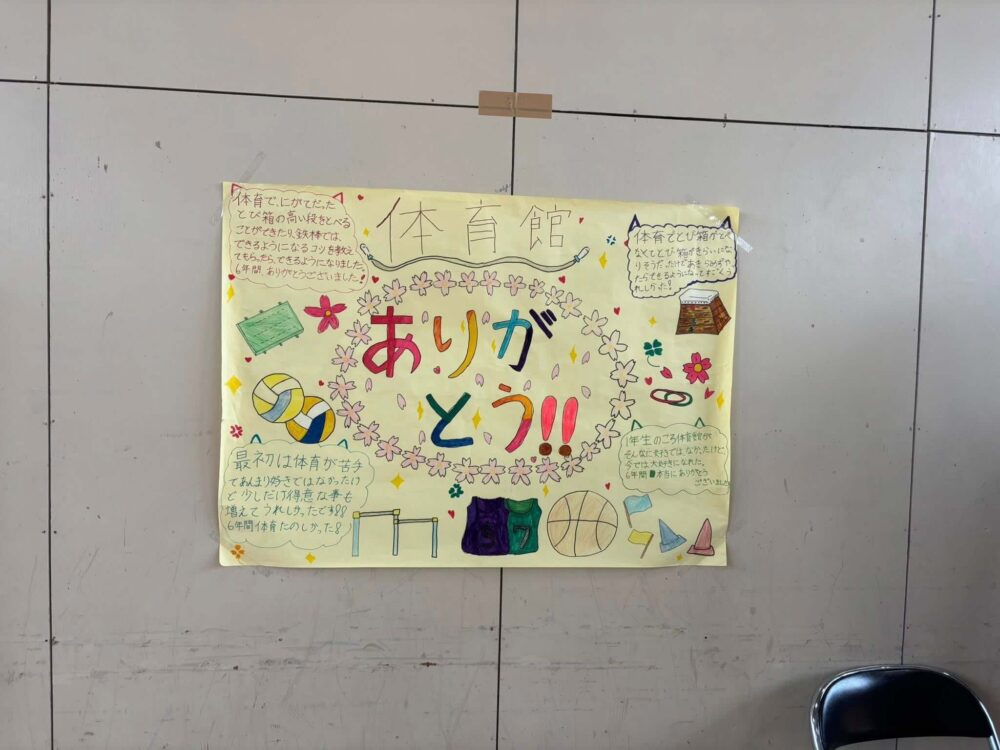 体育館
ありが
とう!!
体育で、にがてだった
とび箱の高い段をとべる
ことができたり、鉄棒では、
できるようになるコツを教え
てもらったら、できるようになりました。
6年間、ありがとうございました!
体育でとび箱がで
なくてとび箱がきらいにな
りそうだったけどあきらめずや
ったらできるようになってすごくう
れしかった!
最初は体育が苦手
であんまり好きではなかったけ
ど少しだけ得意な事も
増えてうれしかったです!!
6年間体育たのしかった!
1年生のころ体育館が
そんなに好きではなかったけど、
今では大好きになれた。
6年間本当にありがとう
ございました
7